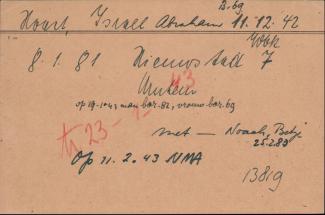 B.69
Hoart, Israel Abraham 11.12.42
Wbk
8.1.81 Nieuwstad 7
op 19-1-43 man bar.82, vrouw bar.69
23-
43
met — Noach, Betj.
25.2.83
op 11.2.43 NMA
13819